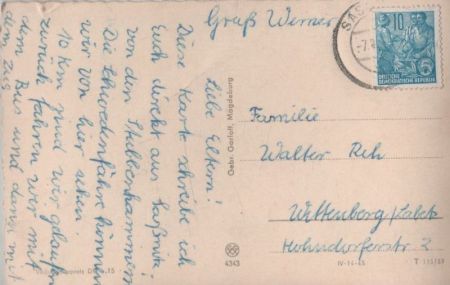 Gruß Werner
Liebe Eltern!
Diese Karte schreibe ich
Euch direkt aus Saßnitz.
von der Stubbenkammer
Die Schwedenfähre können
wir von hier sehen.
10 km sind wir gelaufen
zurück fahren wir mit
dem Bus und dann mit
dem Zug
Gebr. Garloff, Magdeburg
4343
SAS
10
DEUTSCHE
DEMOKRATISCHE REPUBLIK
Familie
Walter Reh
Wittenberg/Lutherst.
Hohndorferstr. 2
IV-14-45